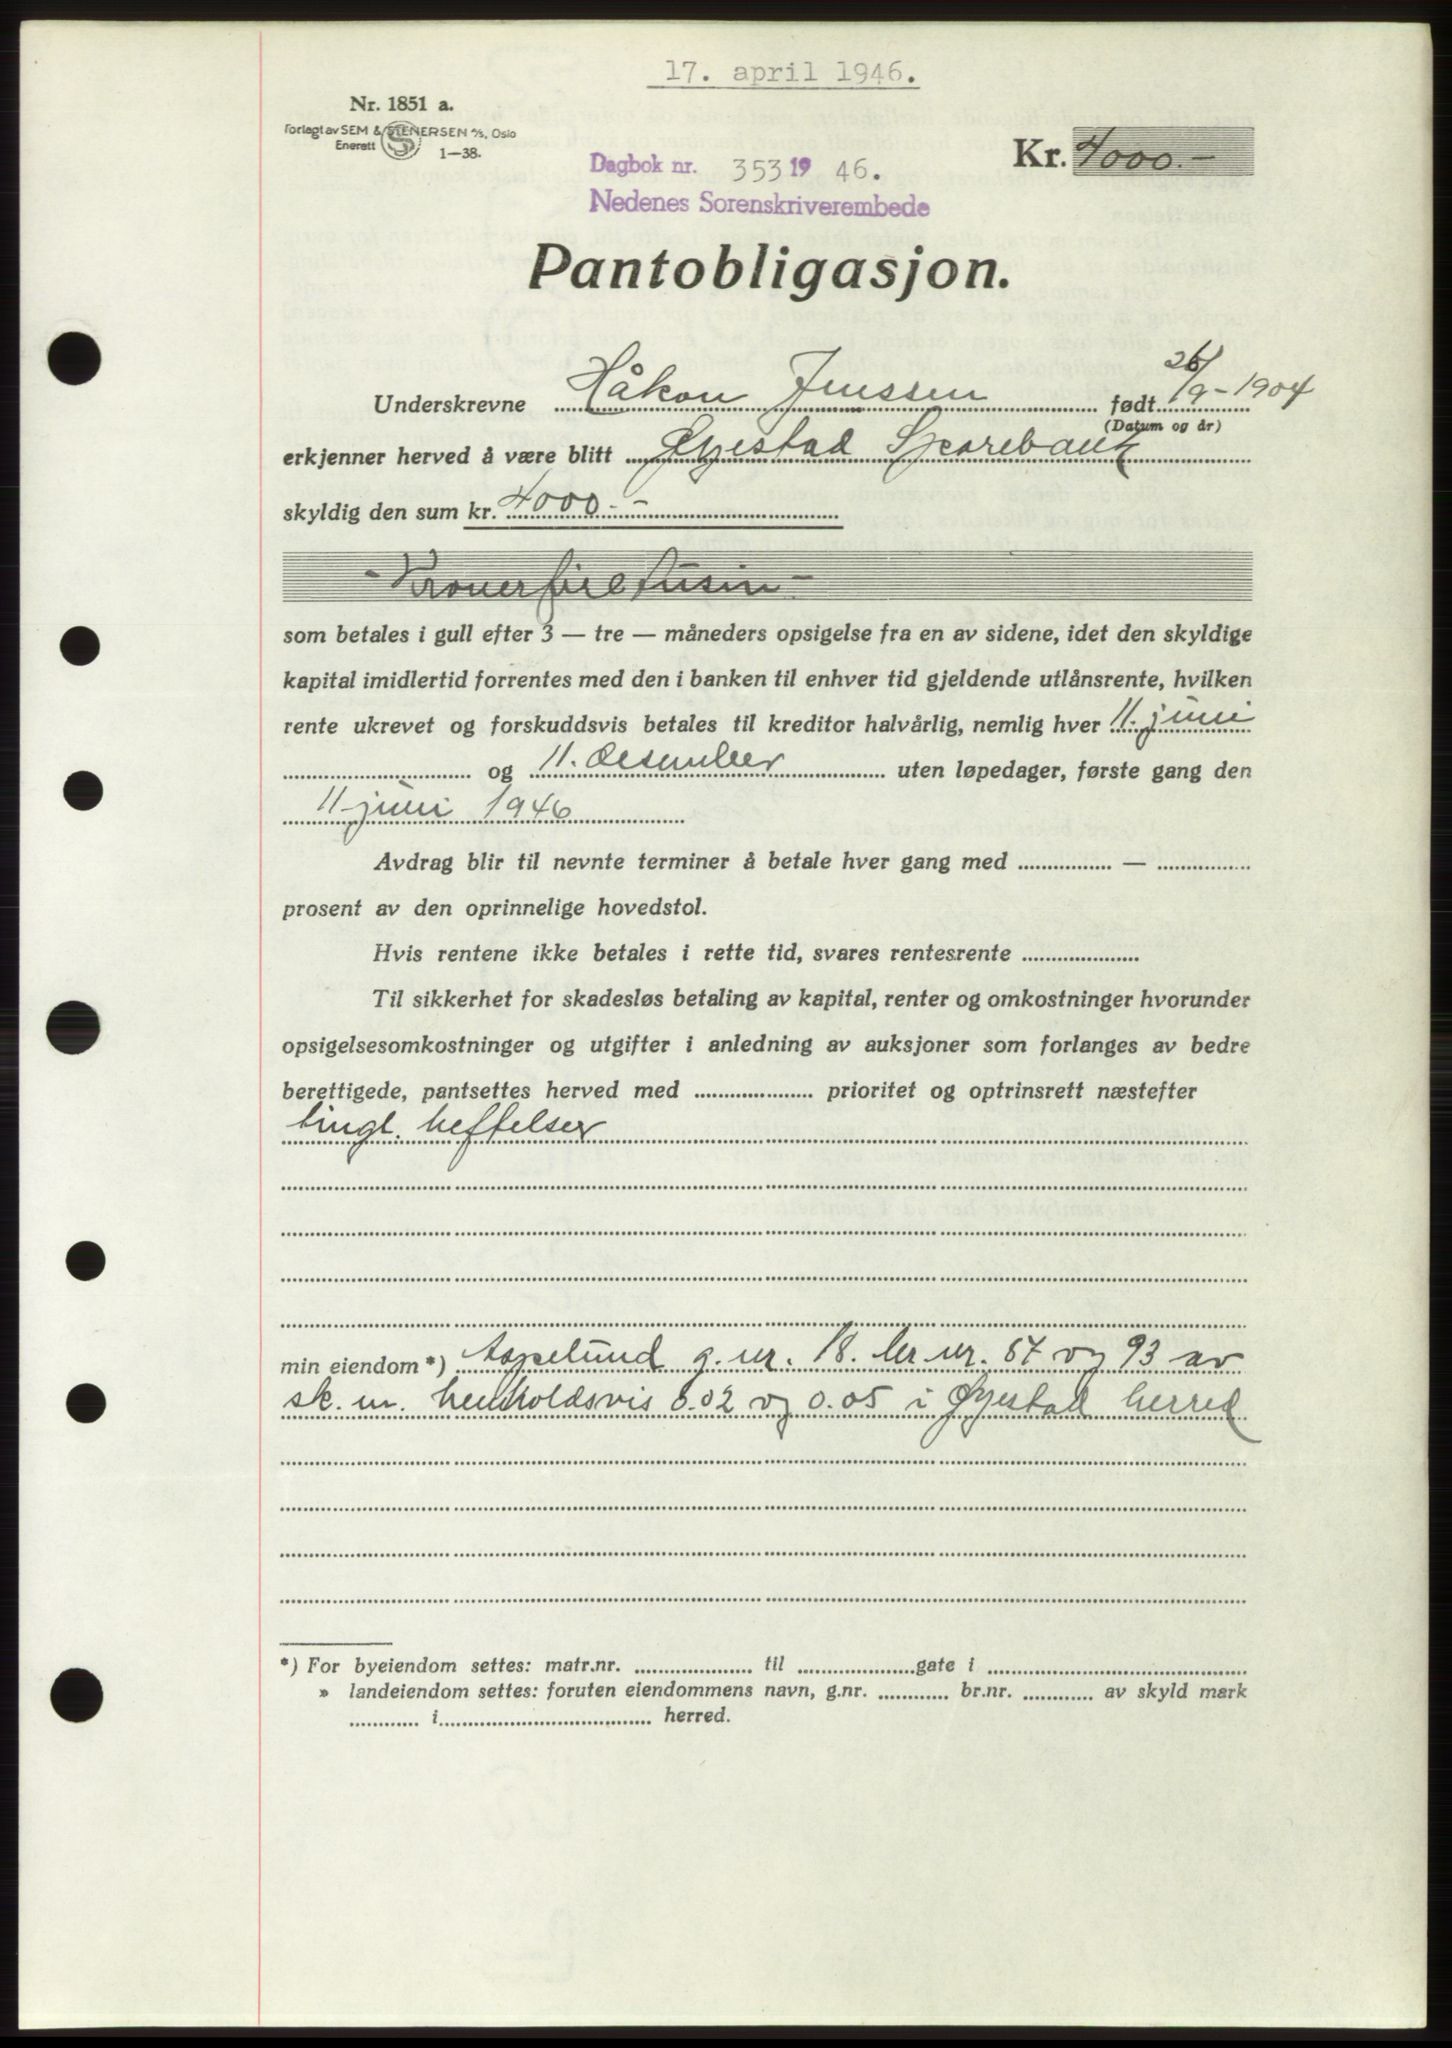 17. april 1946.
Nr. 1851 a.
Forlagt av SEM & STENERSEN A/S, Oslo
Enerett 1—38.
Kr. 4000.-
Dagbok nr. 353 19 46.
Nedenes Sorenskriverembede
Pantobligasjon.
Underskrevne Håkon Jenssen født 26/9-1904
(Datum og år)
erkjenner herved å være blitt Øyestad Sparebank
skyldig den sum kr. 4000.-
- Kroner fire tusin -
som betales i gull efter 3 — tre — måneders opsigelse fra en av sidene, idet den skyldige
kapital imidlertid forrentes med den i banken til enhver tid gjeldende utlånsrente, hvilken
rente ukrevet og forskuddsvis betales til kreditor halvårlig, nemlig hver 11. juni
og 11. desember uten løpedager, første gang den
11 juni 1946
Avdrag blir til nevnte terminer å betale hver gang med — 
prosent av den oprinnelige hovedstol.
Hvis rentene ikke betales i rette tid, svares rentesrente
Til sikkerhet for skadesløs betaling av kapital, renter og omkostninger hvorunder
opsigelsesomkostninger og utgifter i anledning av auksjoner som forlanges av bedre
berettigede, pantsettes herved med prioritet og optrinsrett næstefter
tingl. heftelser
min eiendom *) Aspelund g. nr. 18. br. nr. 67 og 93 av
sk. m. henholdsvis 0.02 og 0.05 i Øyestad herred
*) For byeiendom settes: matr.nr. til gate i
» landeiendom settes: foruten eiendommens navn, g.nr. br.nr. av skyld mark
i herred.